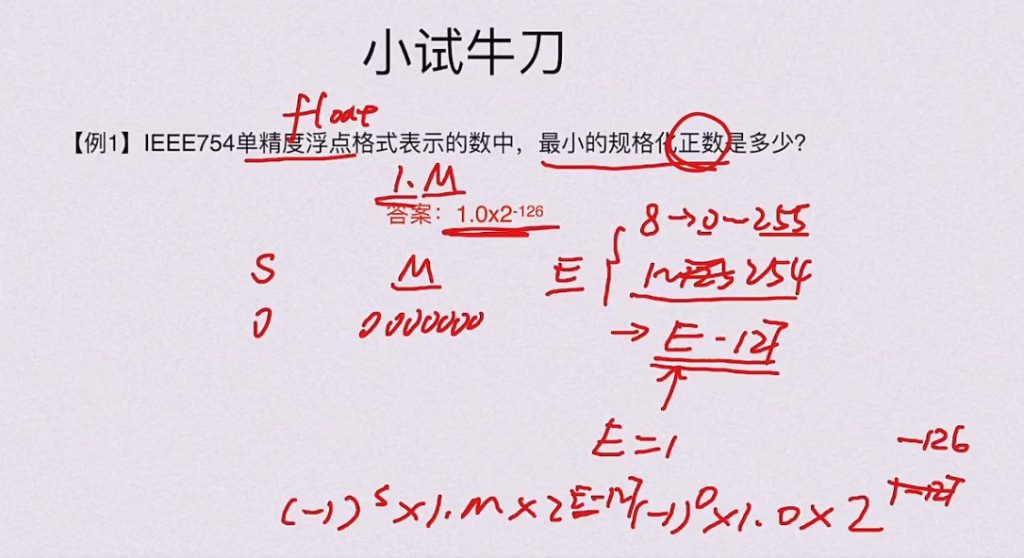 小试牛刀
float
【例1】IEEE754单精度浮点格式表示的数中，最小的规格化正数是多少？
1.M
答案：1.0x2-126
8→0~255
S M E 1~254
0 0000000
→ E-127
E=1
-126
1-127
(-1)^S×1.M×2^E-127 (-1)^0×1.0×2